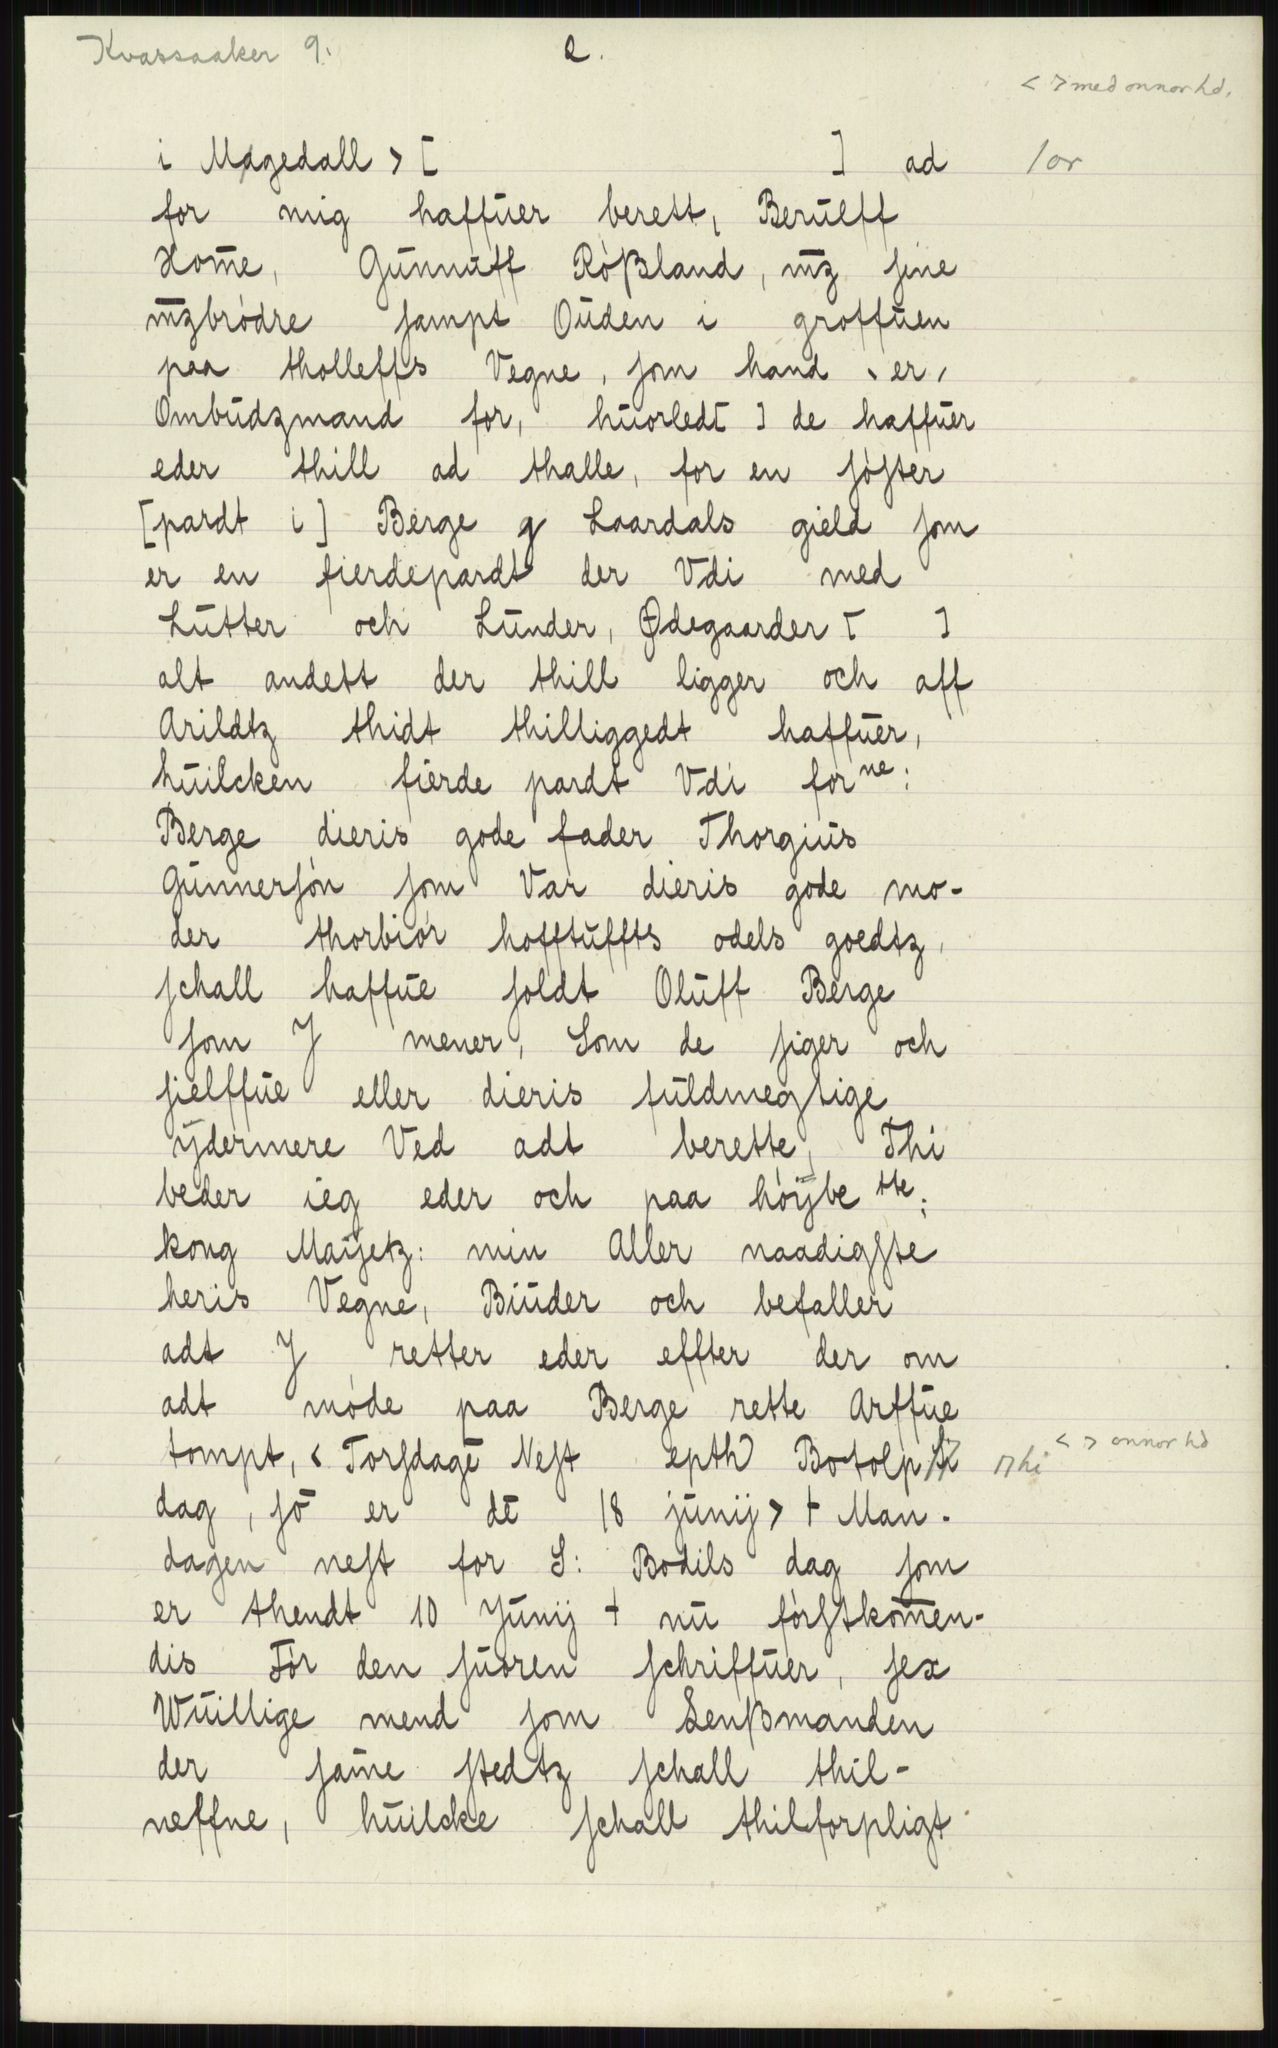 Kvassaaker 9.
2.
< > med onnor hd.
i Magedall > [ ] ad /or
for mig haffuer berett, Berulff
Home, Gunnuff Rößland, mz sine
mzbrödre sampt Ouden i groffuen
paa tholleffs Vegne, som hand ‹ er ›
Ombudzmand for, huorled[ ] de haffuer
eder thill ad thalle, for en söster
[pardt i] Berge y Laardals gield som
er en fierdepardt der Vdi med
Lutter och Lunder, Ødegaarder [ ]
alt andett der thill ligger och aff
Arildtz thidt thilliggedt haffuer,
huilcken fierde pardt Vdi forne:
Berge dieris gode fader Thorgius
Gunnersön som Var dieris gode mo-
der thorbiör hofftuffts odels goedtz,
schall haffue soldt Oluff Berge
som J mener, Som de siger och
sielffue eller dieris fuldmegtige
ÿdermere Ved adt berette, Thi
beder ieg eder och paa höÿbette:
kong Maÿetz: min Aller naadigste
heris Vegne, Biuder och befaller
adt J retter eder effter der om
adt möde paa Berge rette Arffue
tompt, < Torsdage Nest epth Botolp hi
< > onnor hd
dag, so er de 18 junij > + Man-
dagen nest for S: Bodils dag som
er thendt 10 Junij + nu förstkomen-
dis För den suoren schriffuer, sex
Wuillige mend som Lenßmanden
der same stedtz schall thil-
neffne, huilcke schall thilforpligt